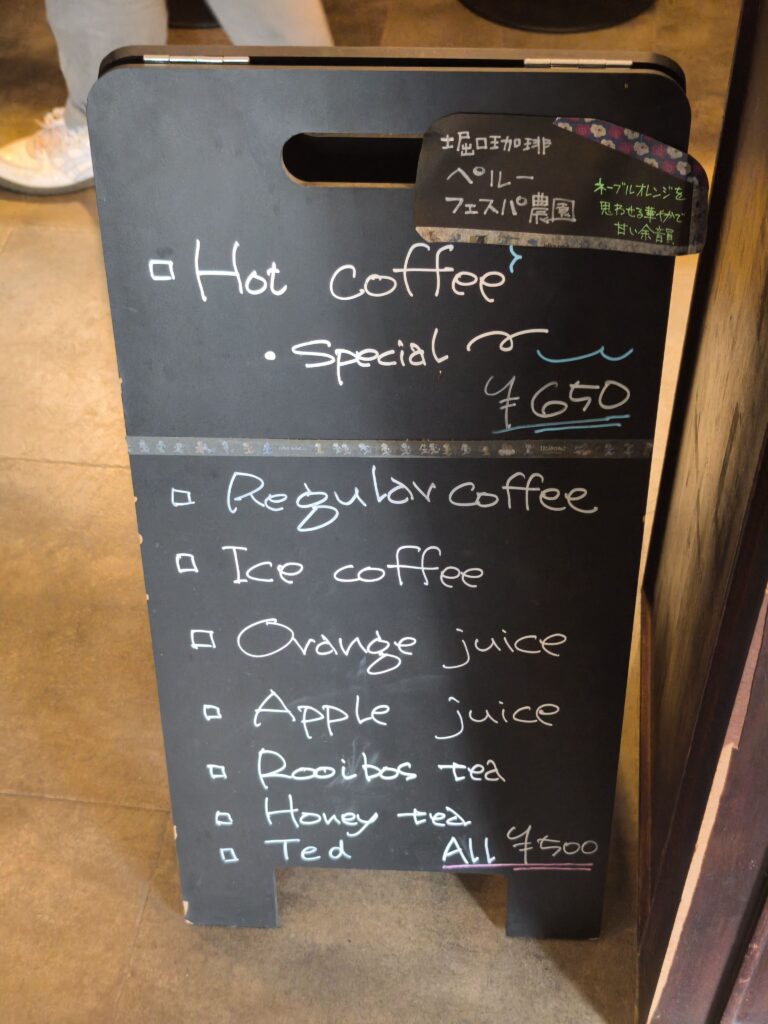 堀口珈琲
ペルー
フェスパ農園
ネーブルオレンジを
思わせる華やかで
甘い余音員
□ Hot coffee
・Special
¥650
□ Regular coffee
□ Ice coffee
□ Orange juice
□ Apple juice
□ Rooibos tea
□ Honey tea
□ Tea All ¥500